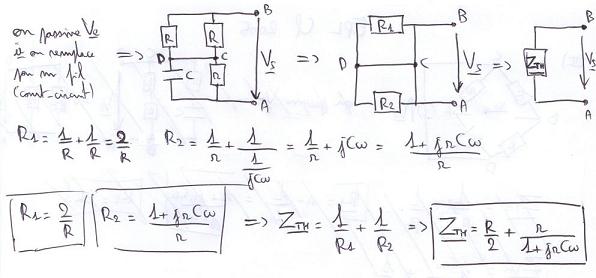 on passive Ve
et on remplace
par un fil
(court-circuit)
=>
R R D C C r B Vs A
=>
R1 D C R2 B Vs A
=>
ZTH B Vs A
R1 = 1/R + 1/R = 2/R    R2 = 1/r + 1/(1/jCω) = 1/r + jCω = (1+jrCω)/r
R1 = 2/R    R2 = (1+jrCω)/r => ZTH = 1/R1 + 1/R2 => ZTH = R/2 + r/(1+jrCω)